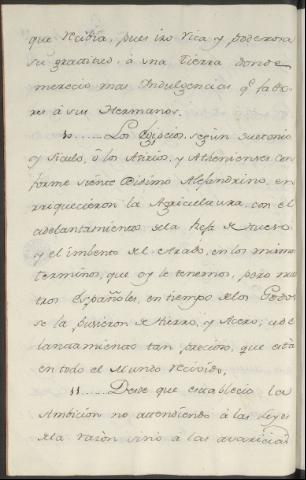 que recibia, pues iso rica y poderosa
su gratitud, á una tierra donde
merecio mas Indulgencias q.e falto-
res á sus Hermanos.
10......Los Egypcios, según Suetonio
y Siculo, ó los Asirios, y Athenienses con
forme siente Didimo Alejandrino, en
rriquecieron la Agricultura, con el
adelantamiento de la Reja de hueso
y el imbento del Arado, en los mismos
terminos, que oy le tenemos, pero nues
tros Españoles, en tiempo de los Godos
se la pusieron de hierro, y Acero; ade
lantamiento tan precioso, que está
en todo el Mundo recivido.
11......Desde que establecio la
Ambicion no attendiendo á las Leyes
de la razon sino á las